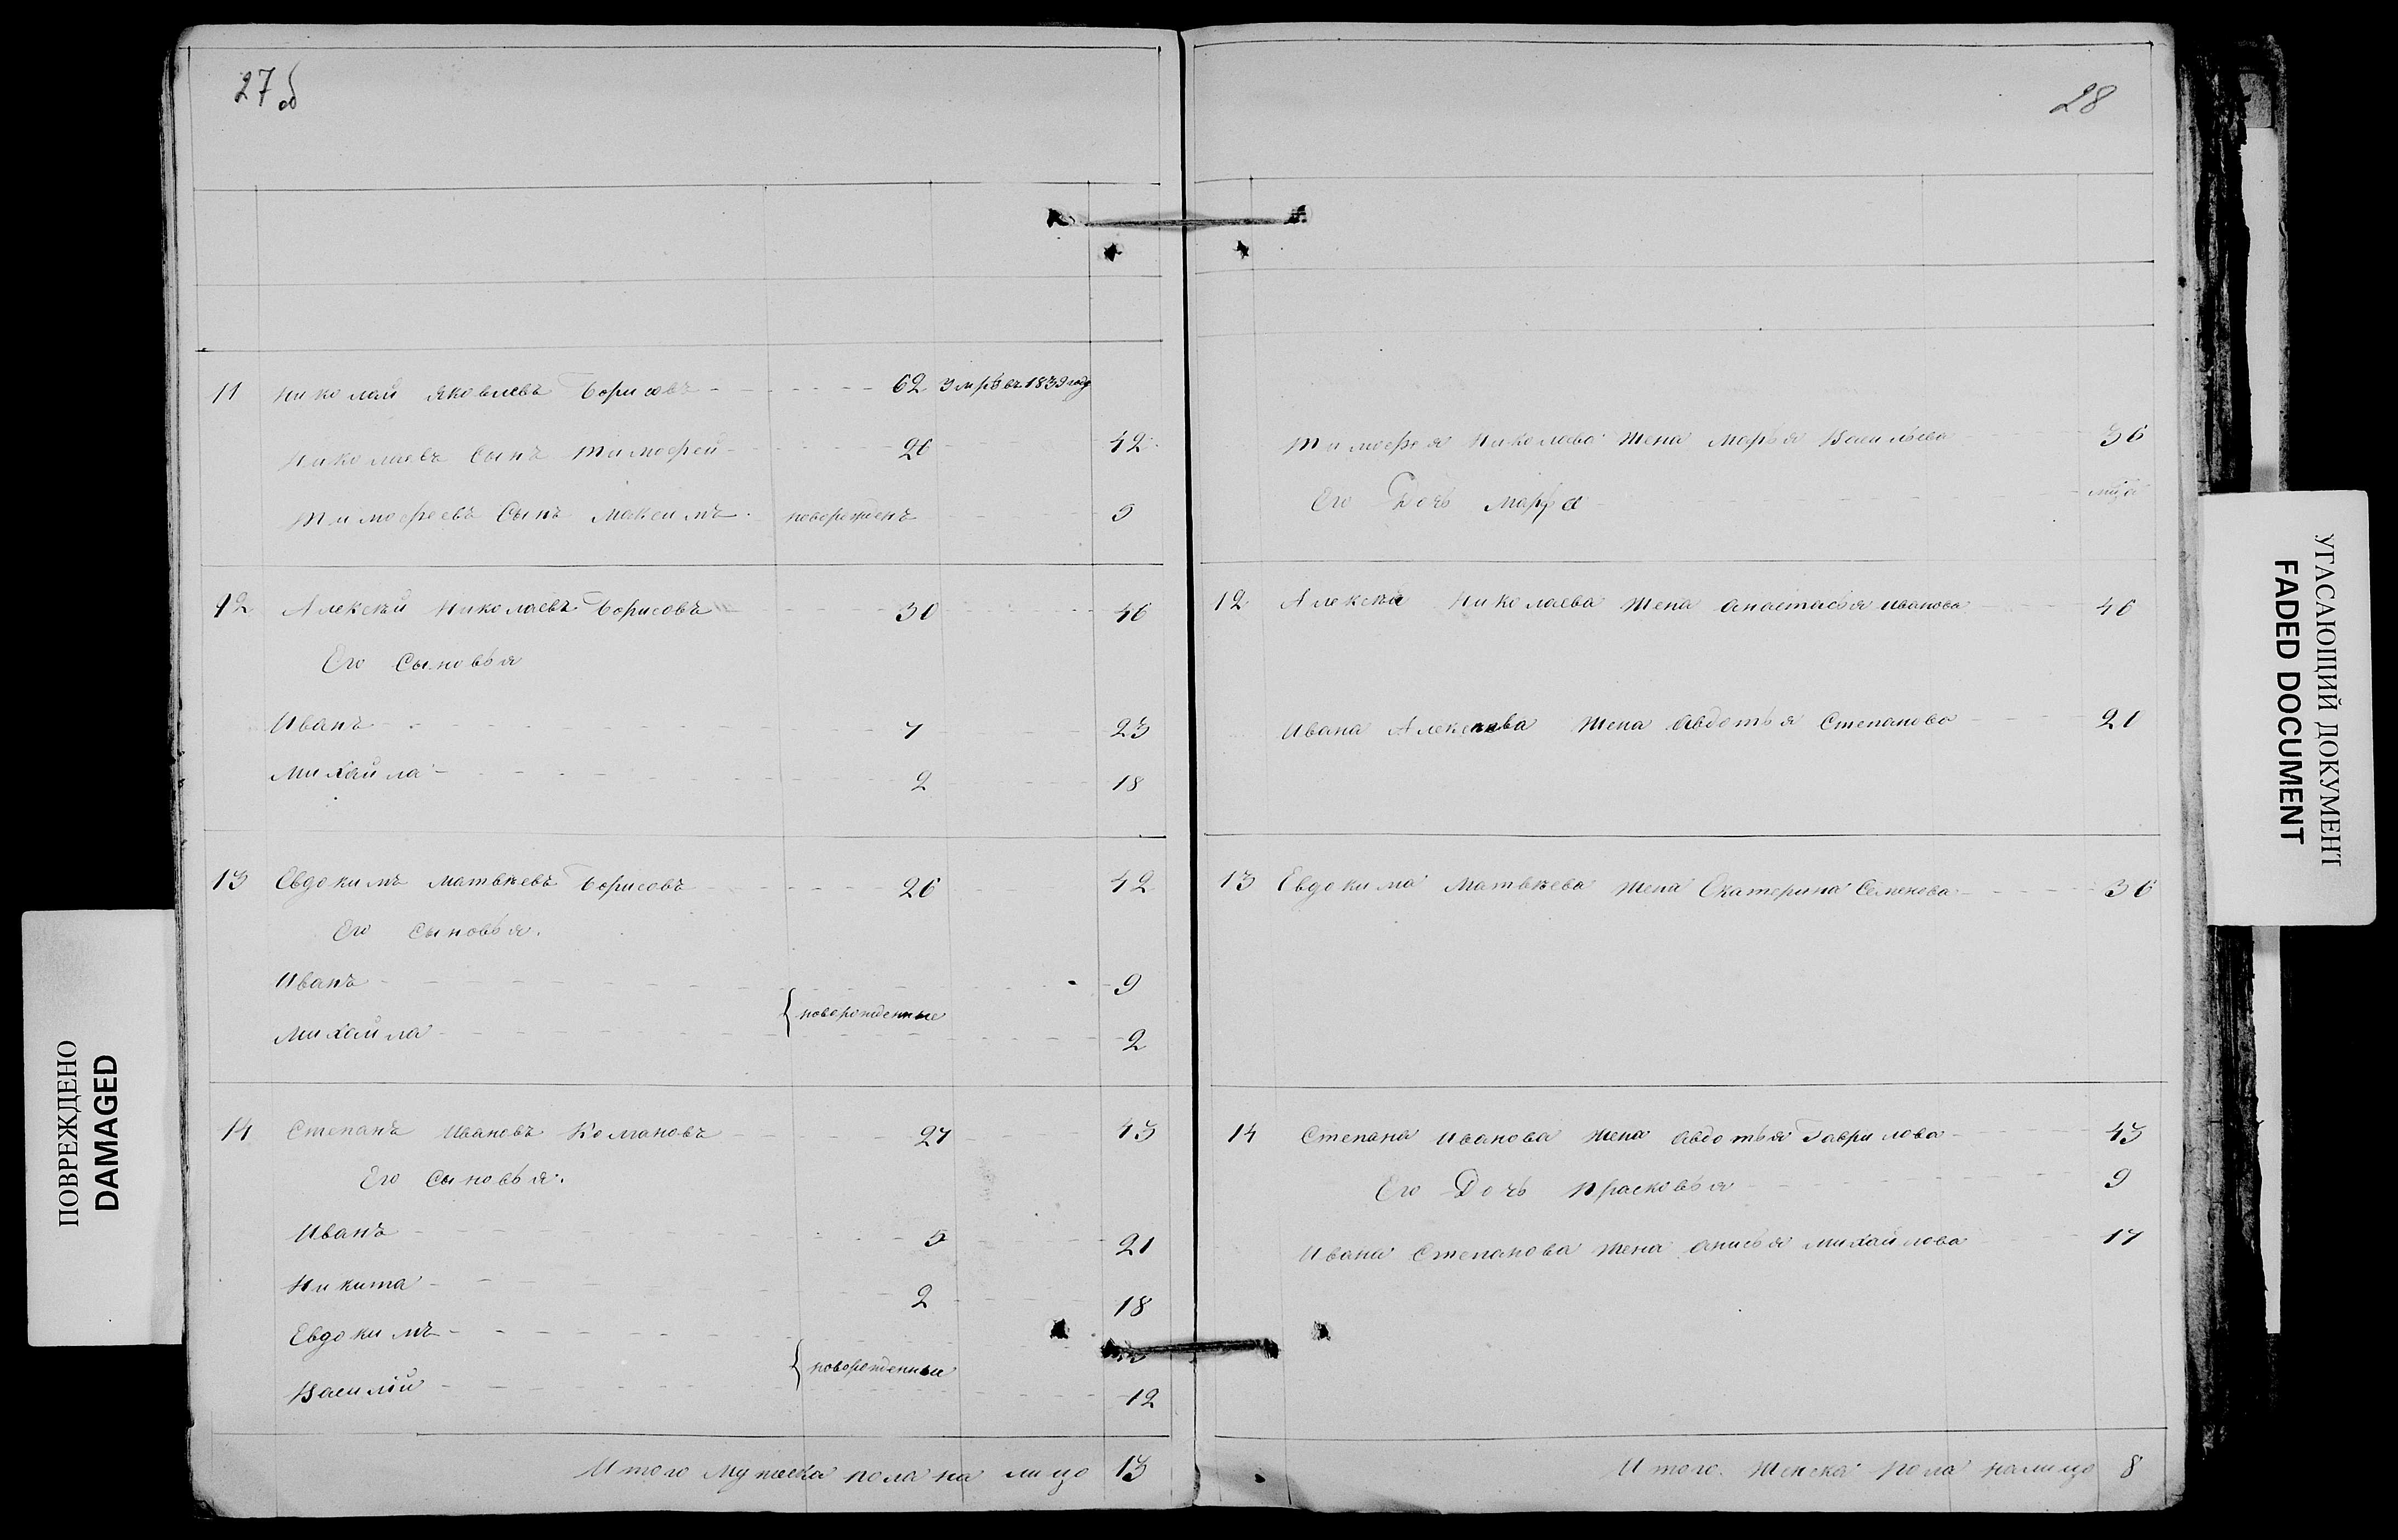 27 об
11 Николай Яковлевъ Борисовъ 62 умръ въ 1839 году
Николаевъ Сынъ Тимофей 26 42
Тимофеевъ Сынъ Максимъ новорожденъ 5
12 Алексѣй Николаевъ Борисовъ 30 46
Его Сыновья
Иванъ 7 23
Михайла 2 18
13 Евдокимъ Матвѣевъ Борисовъ 26 42
Его Сыновья.
Иванъ 9
новорожденные
Михайла 2
14 Степанъ Ивановъ 27 43
Его Сыновья.
Иванъ 5 21
Никита 2 18
Евдокимъ
новорожденные
Василій 12
Итого Мужеска пола на лицо 13
28
Тимофея Николаева Жена Марья Васильева 36
Его Дочь Марфа
12 Алексѣя Николаева Жена Анастасья Иванова 46
Ивана Алексѣева Жена Авдотья Степанова 21
13 Евдокима Матвѣева Жена Екатерина Семенова 36
14 Степана Иванова Жена Авдотья Гаврилова 43
Его Дочь Прасковья 9
Ивана Степанова Жена Анисья Михайлова 17
Итого Женска пола налицо 8
ПОВРЕЖДЕНО
DAMAGED
УГАСАЮЩИЙ ДОКУМЕНТ
FADED DOCUMENT